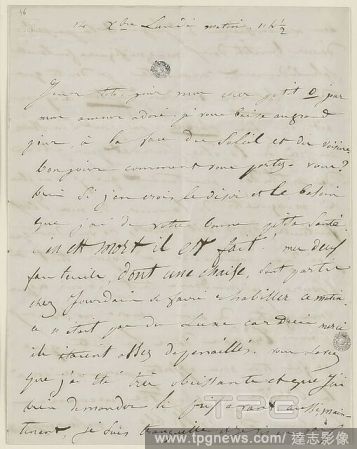 14 Xbre Lundi matin 11 h ½
jour mon cher petit o jour
mon amour adoré je vous baise au grand
jour à la face du soleil et des voisins
bonjour comment vous portez vous?
bien si j'en crois le désir et le besoin
que j'ai de votre bonne petite santé
est mort il est fait mes deux
fauteuils dont une chaise sont partis
chez Jourdain se faire habiller ce matin
ce n'était pas du luxe car Dieu merci
ils étaient assez dépenaillés. vous savez
que j'ai été très obéissante et que j'ai
bien demandé le prix avant
tenant, je suis tranquille
TPG
www.tpgnews.com/達志影像